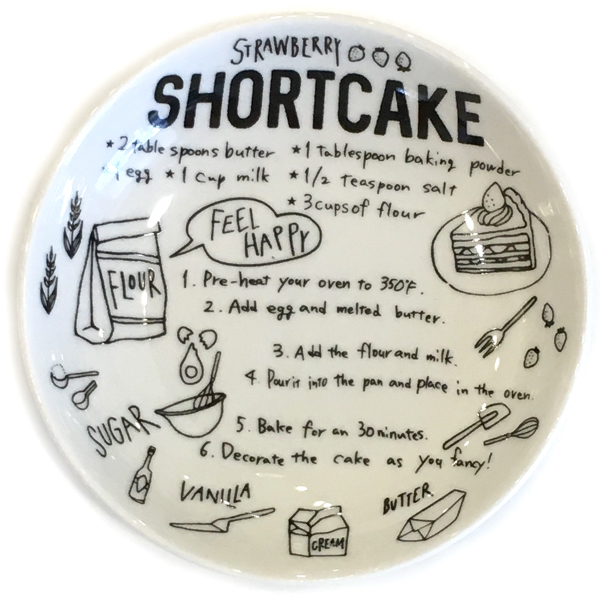 STRAWBERRY
SHORTCAKE
* 2 table spoons butter * 1 Tablespoon baking powder
* 1 egg * 1 cup milk * 1/2 Teaspoon salt
* 3 cups of flour
FEEL
HAPPY
FLOUR
1. Pre-heat your oven to 350°F.
2. Add egg and melted butter.
3. Add the flour and milk.
4. Pour it into the pan and place in the oven.
5. Bake for an 30 minutes.
6. Decorate the cake as you fancy!
SUGAR
VANILLA
CREAM
BUTTER